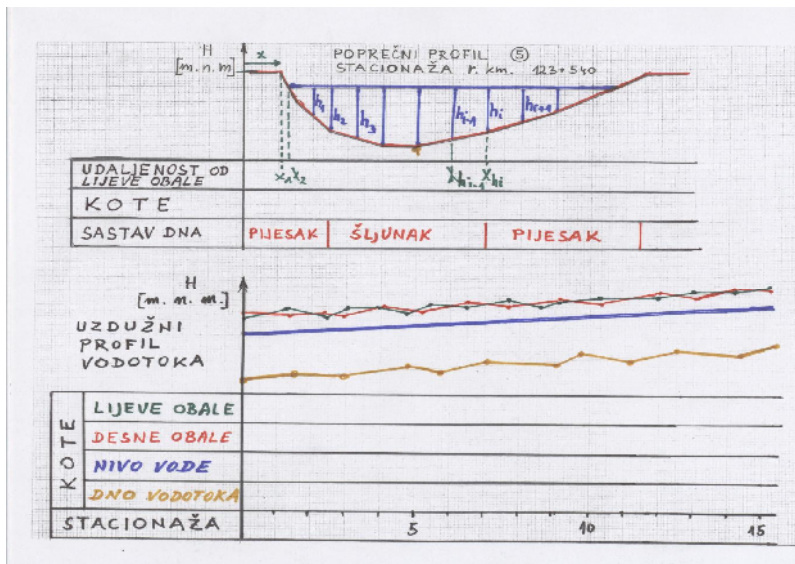 H
[m.n.m]
x
POPREČNI PROFIL ⑤
STACIONAŽA r. km. 123+540
h1 h2 h3 hi-1 hi hi+1
UDALJENOST OD
LIJEVE OBALE
x1 x2 xhi-1 xhi
KOTE
SASTAV DNA PIJESAK ŠLJUNAK PIJESAK
H
[m.n.m.]
UZDUŽNI
PROFIL
VODOTOKA
KOTE
LIJEVE OBALE
DESNE OBALE
NIVO VODE
DNO VODOTOKA
STACIONAŽA 5 10 15